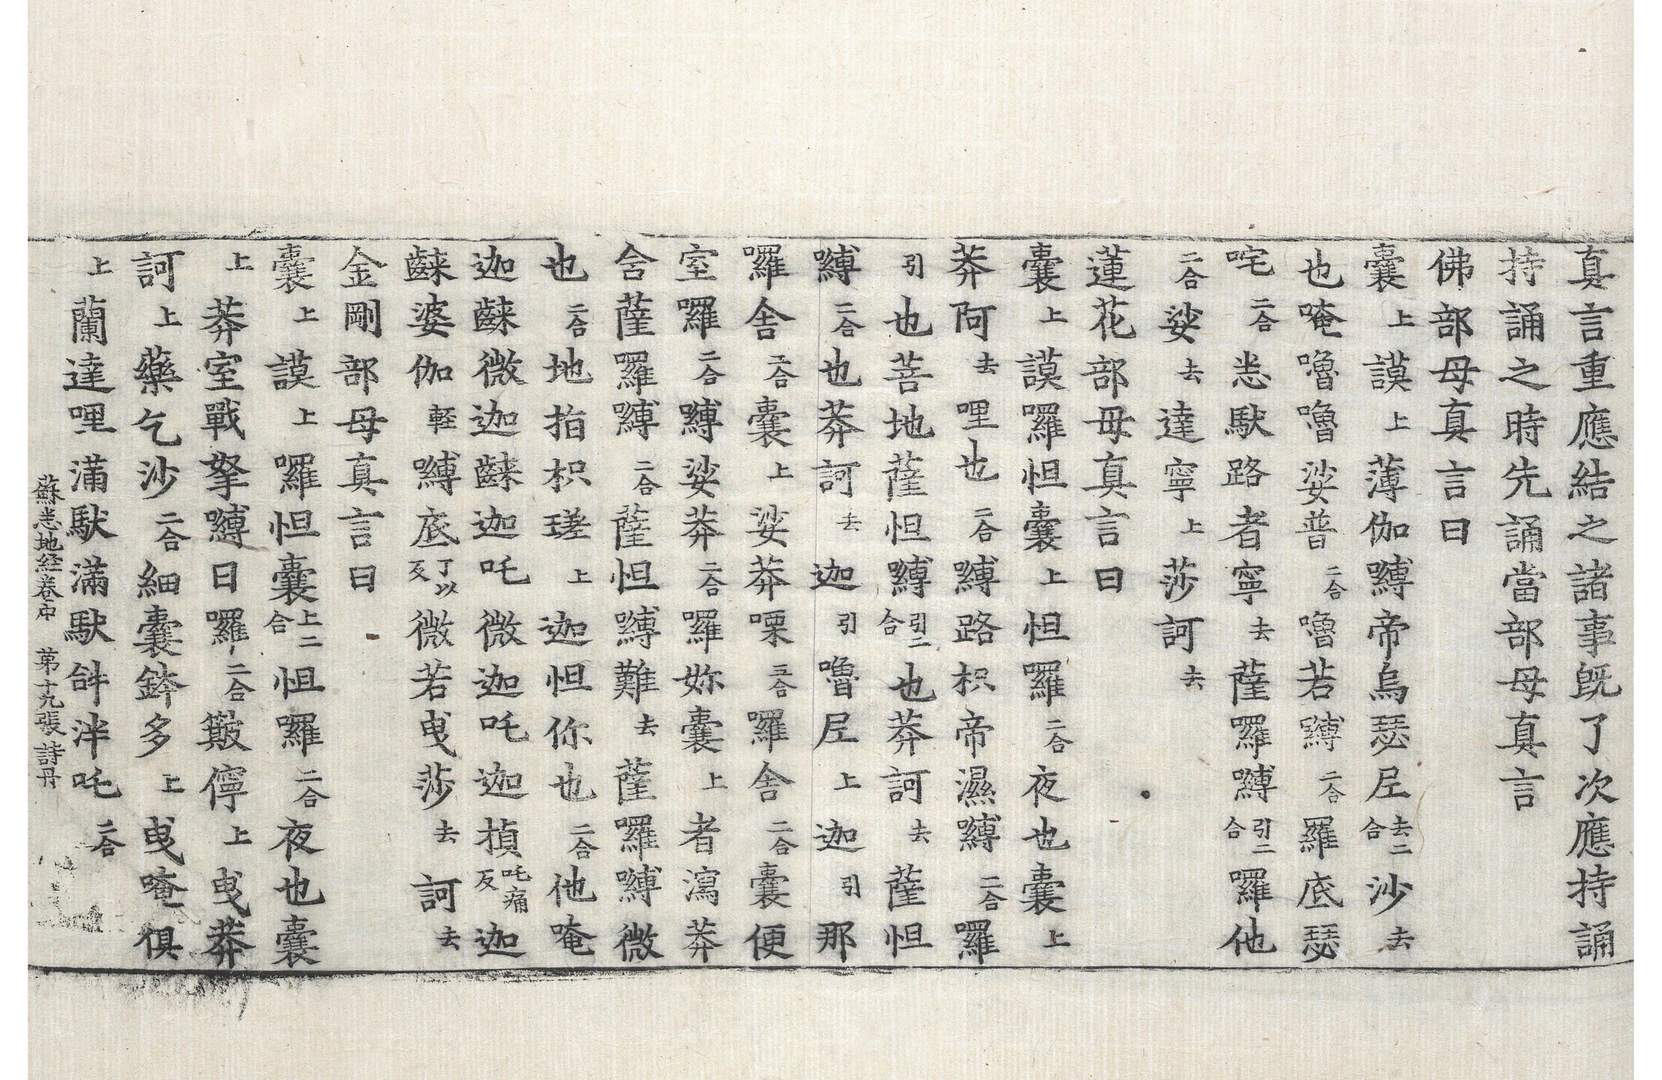 真言重應結之諸事既了次應持誦
持誦之時先誦當部母真言
佛部母真言曰
囊上謨上薄伽嚩帝烏瑟尼去二合沙去
也唵嚕嚕娑普二合嚕若嚩二合羅底瑟
咤二合悉馱路者寧去薩囉嚩引二合囉他
二合娑去達寧上莎訶去
蓮花部母真言曰
囊上謨囉怛囊上怛囉二合夜也囊上
莽阿去哩也二合嚩路枳帝濕嚩二合囉
引也菩地薩怛嚩引二合也莽訶去薩怛
嚩二合也莽訶去迦引嚕尼上迦引那
囉舍二合囊上娑莽㗚三合囉舍二合囊便
室囉二合嚩娑莽二合囉妳囊上者瀉莽
舍薩囉嚩二合薩怛嚩難去薩囉嚩微
也二合地拍枳瑳上迦怛你也二合他唵
迦𪘨微迦𪘨迦吒微迦吒迦楨吒痛反迦
𪘨婆伽輕嚩底丁以反微若曳莎去訶去
金剛部母真言曰
囊上謨上囉怛囊上二合怛囉二合夜也囊
上莽室戰拏嚩日囉二合簸儜上曳莽
訶上藥乞沙二合細囊鉢多上曳唵俱
上蘭達哩滿馱滿馱𤙖泮吒二合
蘇悉地経卷中 第十九張 詩丹